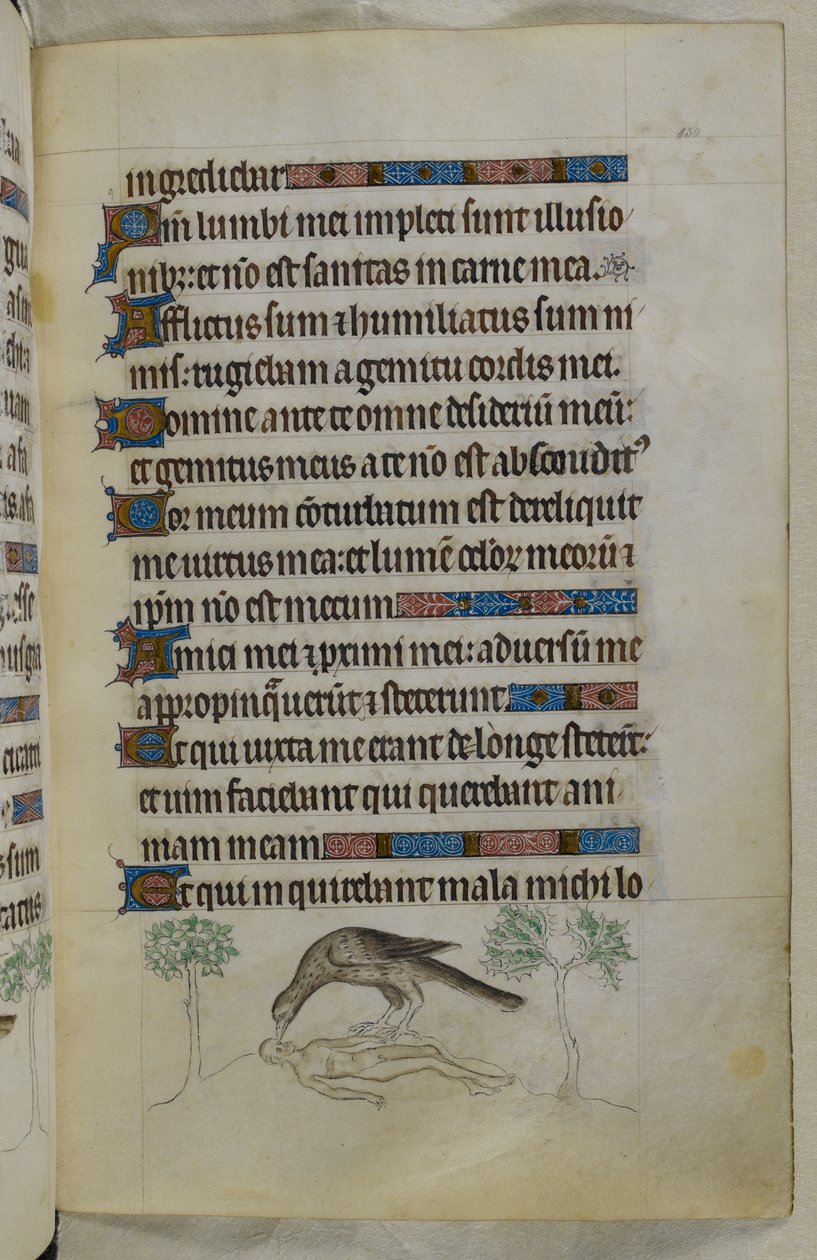 130
ingrediebar
Qm̄ lumbi mei impleti sunt illusio
nibꝫ: et nō est sanitas in carne mea.
Afflictus sum ⁊ humiliatus sum ni
mis: rugiebam a gemitu cordis mei.
Domine ante te omne desideriū meū:
et gemitus meus a te nō est absconditꝰ
Cor meum cōturbatum est dereliquit
me uirtus mea: et lumē oc̄loꝝ meorū ⁊
ip̄m nō est mecum
Amici mei ⁊ ꝓximi mei: aduersū me
appropinqᷓuerūt ⁊ steterunt.
Et qui iuxta me erant de longe steter̄t:
et uim faciebant qui querebant ani
mam meam
Et qui inquirebant mala michi lo